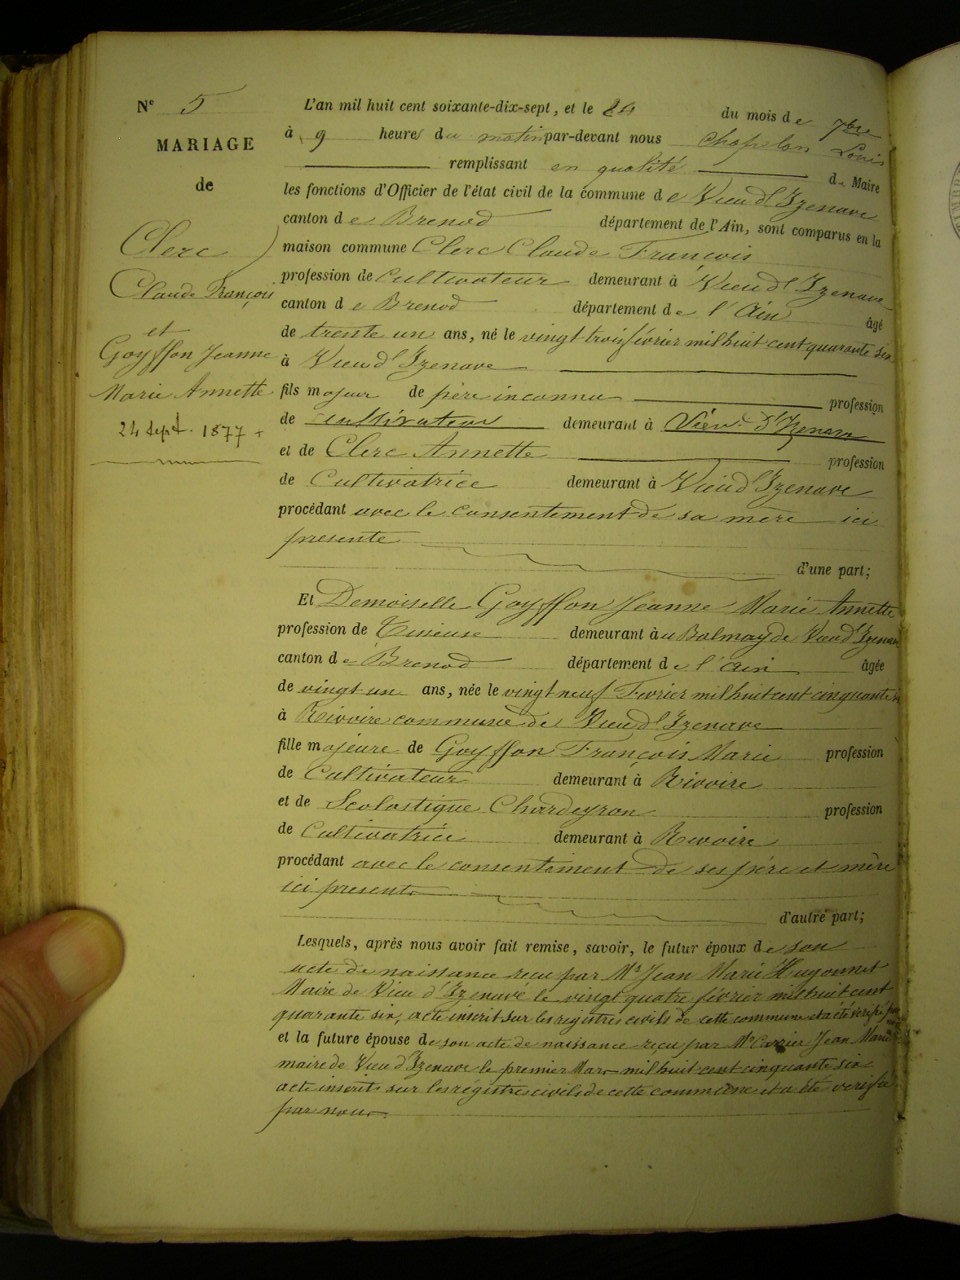 N° 5
MARIAGE
de
Clerc
Claude François
et
Goyffon Jeanne
Marie Annette
24 Sept. 1877
L'an mil huit cent soixante-dix-sept, et le 24 du mois de 7bre
à 9 heures du matin par-devant nous Chapelan Louis
remplissant en qualité de Maire
les fonctions d'Officier de l'état civil de la commune de Vieu d'Izenave
canton de Brenod département de l'Ain, sont comparus en la
maison commune Clerc Claude François
profession de cultivateur demeurant à Vieu d'Izenave
canton de Brenod département de l'Ain âgé
de trente un ans, né le vingt trois février mil huit cent quarante six
à Vieu d'Izenave
fils majeur de père inconnu profession
de cultivateur demeurant à Vieu d'Izenave
et de Clerc Annette profession
de Cultivatrice demeurant à Vieu d'Izenave
procédant avec le consentement de sa mère ici
presente
d'une part;
Et Demoiselle Goyffon Jeanne Marie Annette
profession de demeurant au Balmay de Vieu d'Izenave
canton de Brenod département de l'Ain âgée
de vingt un ans, née le vingt neuf Fevrier mil huit cent cinquante six
à Rivoire commune de Vieu d'Izenave
fille majeure de Goyffon François Marie profession
de Cultivateur demeurant à Rivoire
et de Scolastique Chardeyron profession
de Cultivatrice demeurant à Rivoire
procédant avec le consentement de ses père et mère
ici present
d'autre part;
Lesquels, après nous avoir fait remise, savoir, le futur époux de son
acte de naissance reçu par Mr Jean Marie Hugonnet
Maire de Vieu d'Izenave le vingt quatre février mil huit cent
quarante six, acte inscrit sur les registres civils de cette commune et a été vérifié par
et la future épouse de son acte de naissance reçu par Mr Carrier Jean Marie
maire de Vieu d'Izenave le premier Mars mil huit cent cinquante six
acte inscrit sur les régistres civils de cette commune et a été verifié
par nous.